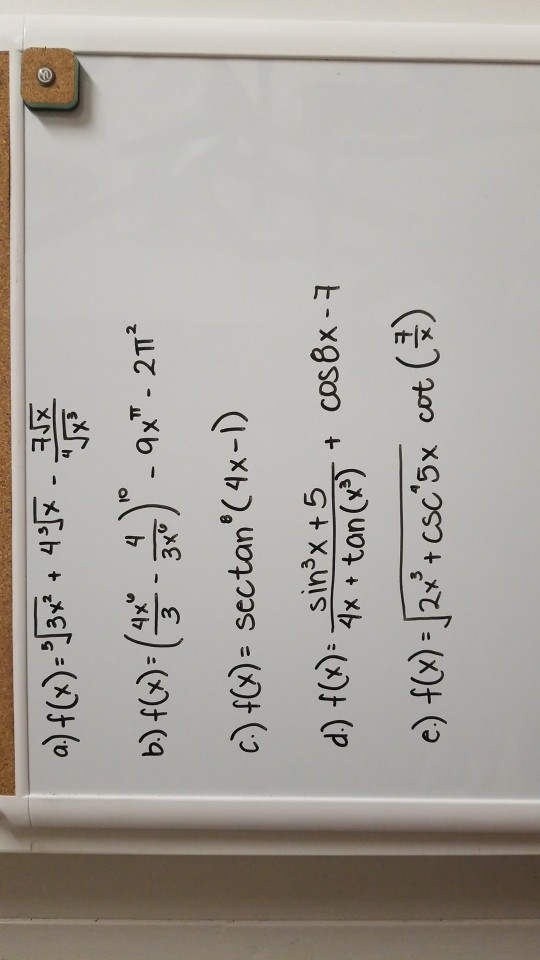 a.) f(x) = ⁵√(3x²) + 4 ³√x - 7√x / ⁴√(x³)
b.) f(x) = (4x⁶/3 - 4/(3x⁶))¹⁰ - 9x^π - 2π²
c.) f(x) = sectan⁸(4x-1)
d.) f(x) = (sin³x + 5)/(4x + tan(x³)) + cos8x - 7
e.) f(x) = √(2x³ + csc⁴5x) cot(7/x)